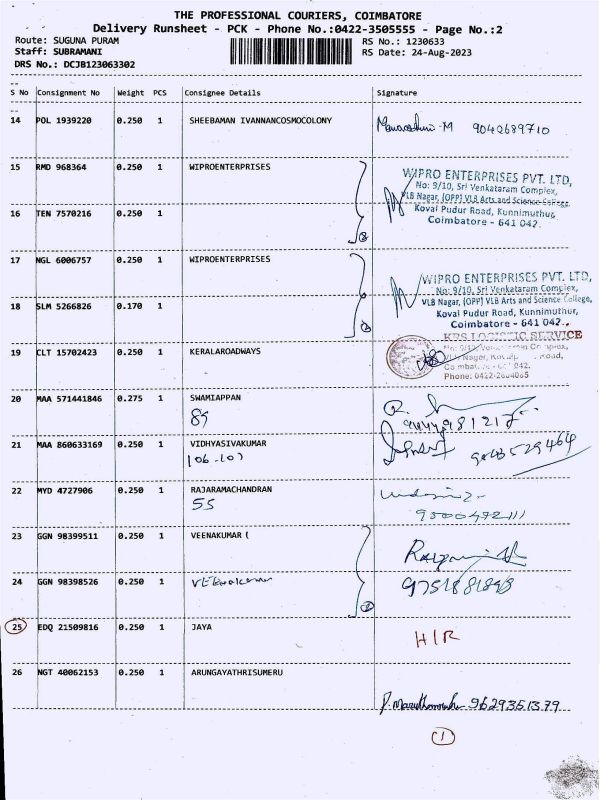 THE PROFESSIONAL COURIERS, COIMBATORE
Delivery Runsheet - PCK - Phone No.:0422-3505555 - Page No.:2
Route: SUGUNA PURAM RS No.: 1230633
Staff: SUBRAMANI RS Date: 24-Aug-2023
DRS No.: DCJB123063302
S No Consignment No Weight PCS Consignee Details Signature
14 POL 1939220 0.250 1 SHEEBAMAN IVANNANCOSMOCOLONY
9042689710
15 RMD 968364 0.250 1 WIPROENTERPRISES
WIPRO ENTERPRISES PVT. LTD,
No: 9/10, Sri Venkataram Complex,
VLB Nagar, (OPP) VLB Arts and Science College,
16 TEN 7570216 0.250 1
Kovai Pudur Road, Kunnimuthur,
Coimbatore - 641 042.
2
17 NGL 6006757 0.250 1 WIPROENTERPRISES
WIPRO ENTERPRISES PVT. LTD,
No: 9/10, Sri Venkataram Complex,
VLB Nagar, (OPP) VLB Arts and Science College,
18 SLM 5266826 0.170 1
Kovai Pudur Road, Kunnimuthur,
Coimbatore - 641 042.
SERVICE
19 CLT 15702423 0.250 1 KERALAROADWAYS
Road,
042.
Phone: 0422-2604065
20 MAA 571441846 0.275 1 SWAMIAPPAN
89
21 MAA 860633169 0.250 1 VIDHYASIVAKUMAR
106-107
9043529464
22 MYD 4727906 0.250 1 RAJARAMACHANDRAN
55
23 GGN 98399511 0.250 1 VEENAKUMAR (
24 GGN 98398526 0.250 1
2
25 EDQ 21509816 0.250 1 JAYA
H/R
26 NGT 40062153 0.250 1 ARUNGAYATHRISUMERU
9629351379
1